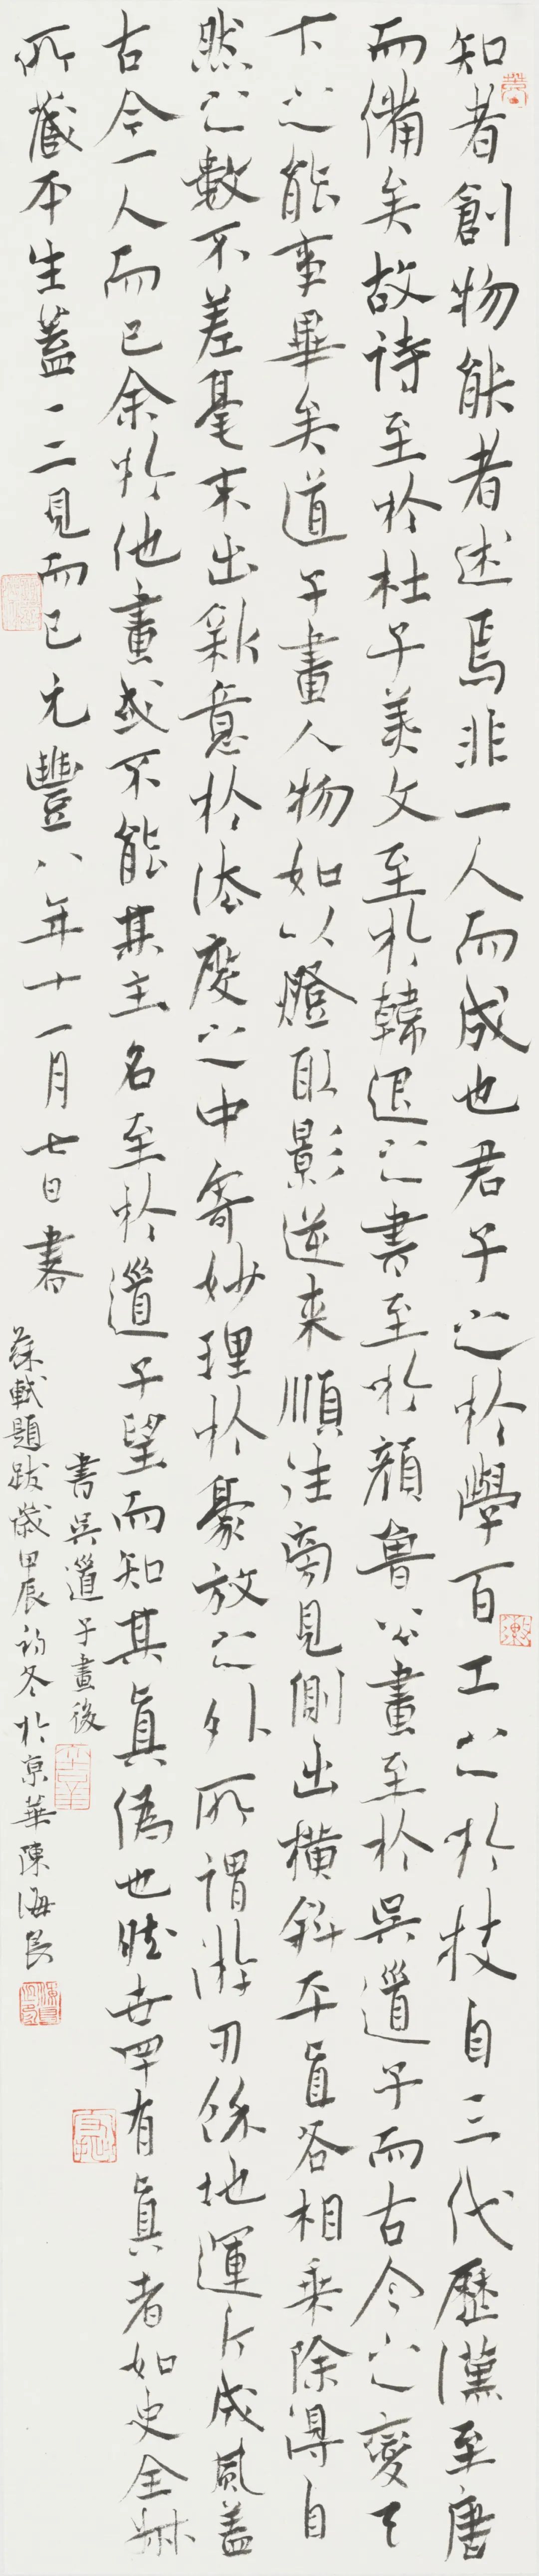 知者創物能者述焉非一人而成也君子之於學百工之於技自三代歷漢至唐
而備矣故詩至於杜子美文至於韓退之書至於顏魯公畫至於吳道子而古今之變天
下之能事畢矣道子畫人物如以燈取影逆来順往旁見側出橫斜平直各相乘除得自
然之數不差毫末出新意於法度之中寄妙理於豪放之外所謂游刃餘地運斤成風蓋
古今一人而已余於他畫或不能其主名至於道子望而知其真偽也然世罕有真者如史全叔
所藏平生蓋一二見而已元豐八年十一月七日書
書吳道子畫後
蘇軾題跋歲甲辰初冬於京華陳海良